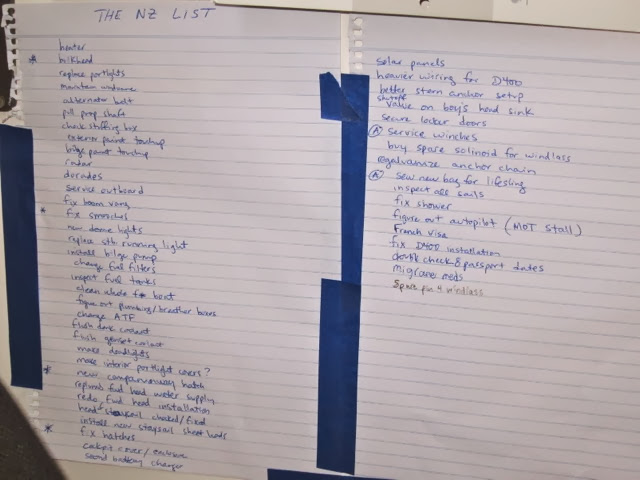 THE NZ LIST
heater
* bulkhead
replace portlights
maintain windvane
alternator bolt
pull prop shaft
check stuffing box
exterior paint touchup
bilge paint touchup
radar
dorades
service outboard
fix boom vang
* fix
new dome lights
replace stb running light
install bilge pump
change fuel filters
inspect fuel tanks
clean whole boat
figure out plumbing/breather
change ATF
flush coolant
flush genset coolant
make deadlights
make interior portlight covers?
* new companionway hatch
fwd head water supply
redo fwd head installation
head staysail fixed
install new staysail sheet leads
* fix hatches
cockpit cover/
second battery charger
solar panels
heavier wiring for D400
better stern anchor setup
shutoff
valve on boy's head sink
secure locker doors
(A) service winches
buy spare solinoid for windlass
regalvanize anchor chain
(A) sew new bag for lifesling
inspect all sails
fix shower
figure out autopilot (MOT Stall)
French visa
fix D400 installation
check & passport dates
migraine meds
Spare pin 4 windlass